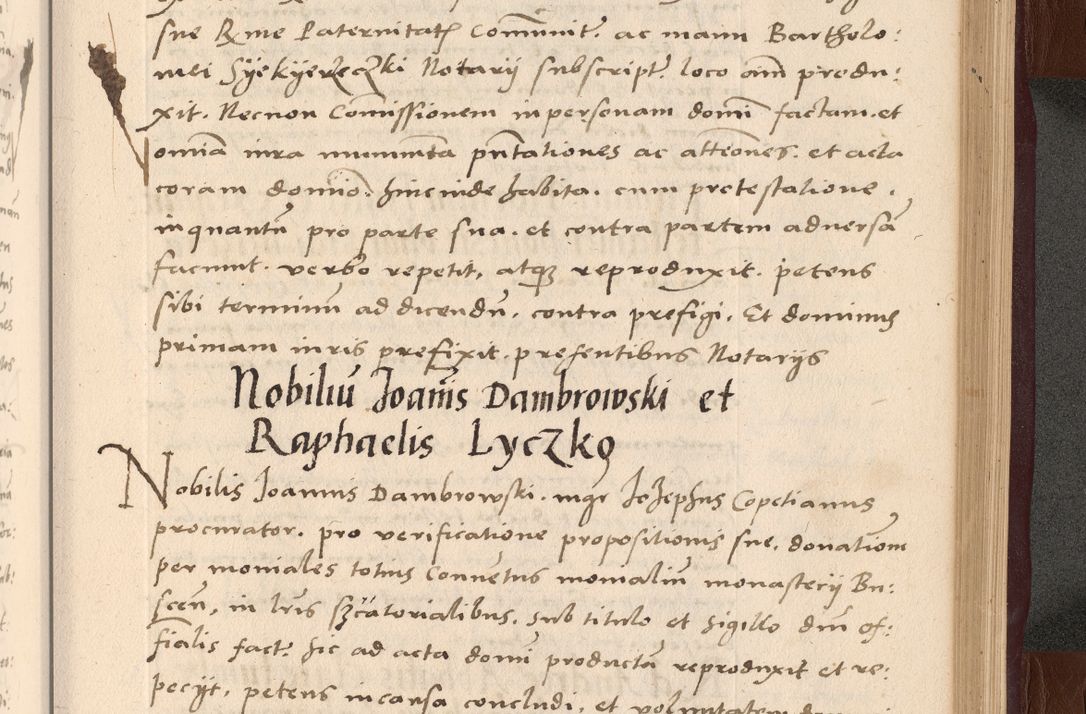 sue Rme Paternitatꝭ Com̃unit: ac manu Bartholo:
mei Syekyerzeczki Notarij subscript: loco om̃ produ:
xit. Necnon Com̃issionem in personam domĩ factam. et
omĩa iura munimẽta pñtationes ac attẽones. et acta
coram domĩo. hincinde habita. cum protestatione.
in quantũ pro parte sua. et contra partem adversã
faciunt. verbo repetit, atqꝫ reproduxit. petens
sibi terminũ ad dicendũ. contra prefigi. Et dominus
primam iuris prefixit. presentibus Notarijs
Nobiliũ Joañis Dambrowski et
Raphaelis Lyczko
Nobilis Joannis Dambrowski. mgr Jozephus Copetianus
procurator. pro verificatione propositionis sue. donatione
per moniales totius Conventus monialiũ monasterij Bu:
scẽn, in lr̃is sẽcatorialibus. sub titulo et sigillo dñi of:
ficialis fact: hic ad acta domĩ productã reproduxit et re:
pecijt. petens in causa concludi. et voluntatem